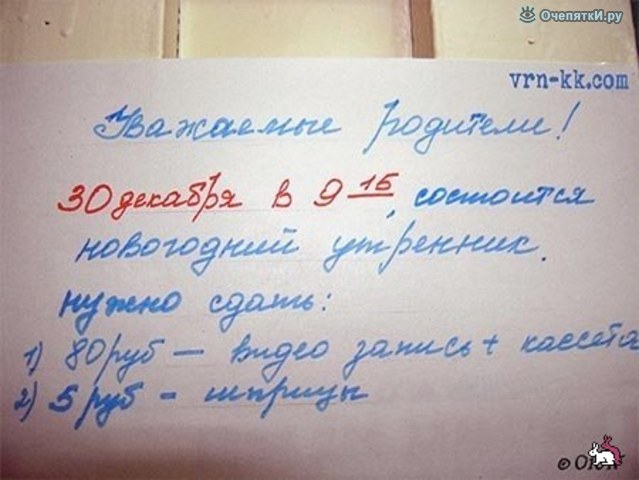 ОчепяткИ.ру
vrn-kk.com
Уважаемые родители!
30 декабря в 9 15, состоится
новогодний утренник.
нужно сдать:
1) 80 руб — видео запись + кассета
2) 5 руб - шприцы